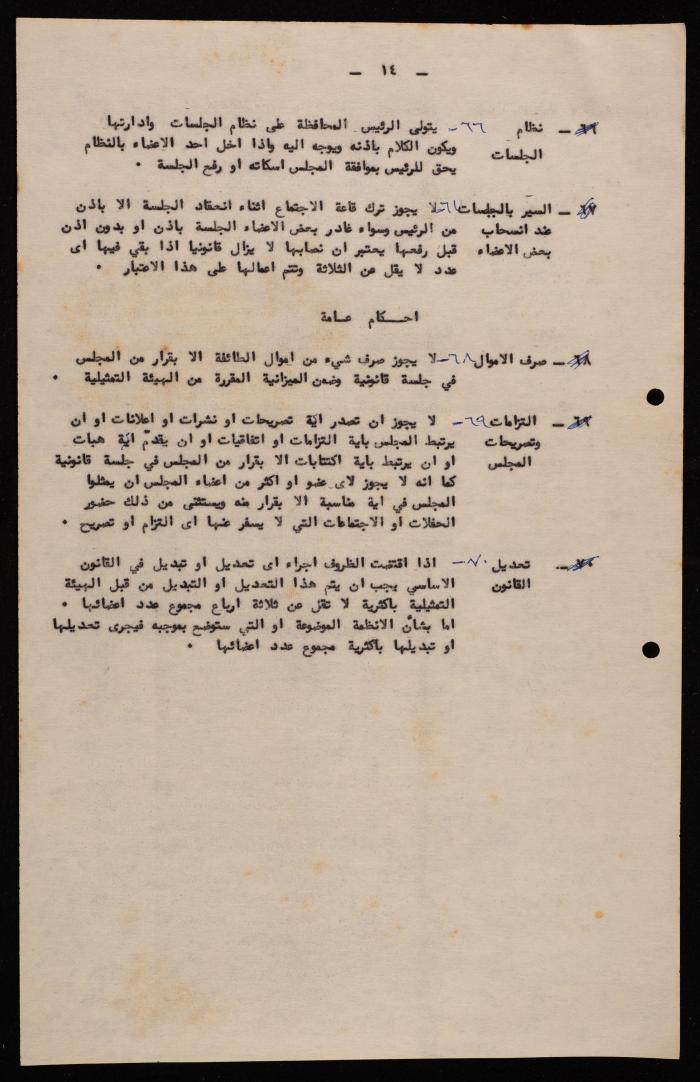 — ١٤ —
نظام ٦٦- يتولى الرئيس المحافظة على نظام الجلسات وادارتها
الجلسات ويكون الكلام باذنه ويوجه اليه واذا اخل احد الاعضاء بالنظام
يحق للرئيس بموافقة المجلس اسكاته او رفع الجلسة .
السير بالجلسات ٦٧- لا يجوز ترك قاعة الاجتماع اثناء انعقاد الجلسة الا باذن
عند انسحاب من الرئيس وسواء غادر بعض الاعضاء الجلسة باذن او بدون اذن
بعض الاعضاء قبل رفعها يعتبر ان نصابها لا يزال قانونيا اذا بقي فيها اى
عدد لا يقل عن الثلاثة وتتم اعمالها على هذا الاعتبار .
احـكام عـامة
صرف الاموال ٦٨- لا يجوز صرف شيء من اموال الطائفة الا بقرار من المجلس
في جلسة قانونية وضمن الميزانية المقررة من الهيئة التمثيلية .
التزامات ٦٩- لا يجوز ان تصدر اية تصريحات او نشرات او اعلانات او ان
وتصريحات يرتبط المجلس باية التزامات او اتفاقيات او ان يقدّم اية هبات
المجلس او ان يرتبط باية اكتتابات الا بقرار من المجلس في جلسة قانونية
كما انه لا يجوز لاى عضو او اكثر من اعضاء المجلس ان يمثلوا
المجلس في اية مناسبة الا بقرار منه ويستثنى من ذلك حضور
الحفلات او الاجتماعات التي لا يسفر عنها اى التزام او تصريح .
تعديل ٧٠- اذا اقتضت الظروف اجراء اى تعديل او تبديل في القانون
القانون الاساسي يجب ان يتم هذا التعديل او التبديل من قبل الهيئة
التمثيلية باكثرية لا تقل عن ثلاثة ارباع مجموع عدد اعضائها .
اما بشأن الانظمة الموضوعة او التي ستوضع بموجبه فيجرى تعديلها
او تبديلها باكثرية مجموع عدد اعضائها .